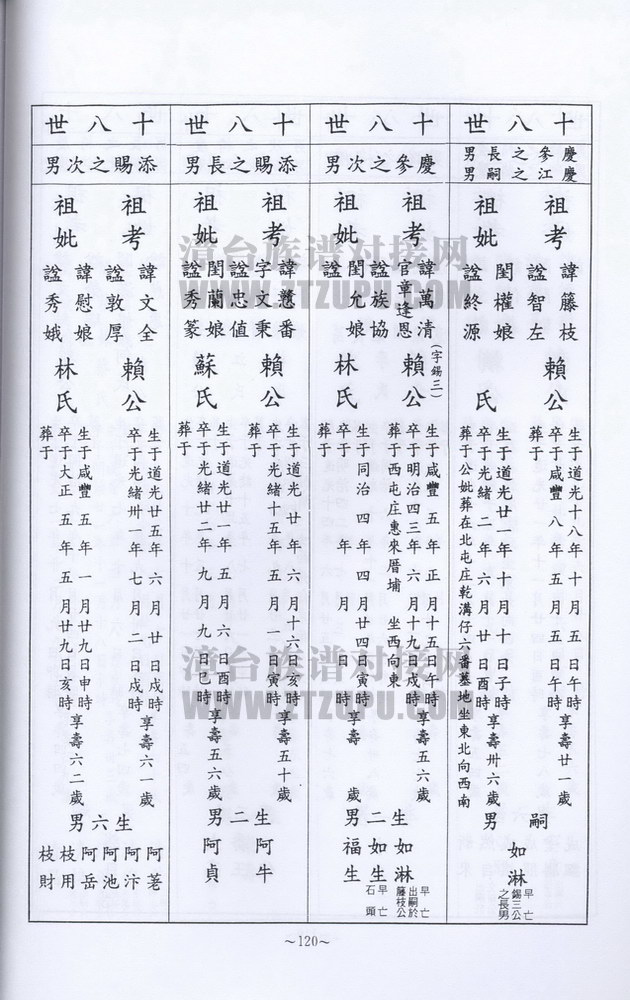 十八世
慶參之長男
慶江之嗣男
祖考
諱藤枝
諡智左
賴公
生于道光十八年十月五日午時
卒于咸豐八年五月五日午時享壽廿一歲
葬于
祖妣
閨權娘
諡終源
氏
生于道光廿一年十月十日子時
卒于光緒二年六月廿日酉時享壽卅六歲
葬于公妣葬在北屯庄乾溝仔六番墓地坐東北向西南
嗣男
如淋
早亡
錫三公之長男
十八世
慶參之次男
祖考
諱萬清
官章逢恩
諡族協
(字錫三)
賴公
生于咸豐五年正月十五日午時
卒于明治四三年六月十九日戌時享壽五六歲
葬于西屯庄惠來厝埔 坐西向東
祖妣
閨允娘
諡
林氏
生于同治四年四月廿四日寅時
卒于 年 月 日 時享壽 歲
葬于
生二男
如淋
早亡
出嗣於藤枝公
如生
早亡
福生
石頭
十八世
添賜之長男
祖考
諱憼番
字文秉
諡忠值
賴公
生于道光廿年六月十六日亥時
卒于光緒十五年五月一日寅時享壽五十歲
葬于
祖妣
閨蘭娘
諡秀篆
蘇氏
生于道光廿一年五月六日酉時
卒于光緒廿二年九月九日巳時享壽五六歲
葬于
生二男
阿牛
阿貞
十八世
添賜之次男
祖考
諱文全
諡敦厚
賴公
生于道光廿五年六月廿日戌時
卒于光緒卅一年七月二日戌時享壽六一歲
祖妣
諱慰娘
諡秀娥
林氏
生于咸豐五年一月廿九日申時
卒于大正五年五月廿九日亥時享壽六二歲
葬于
生六男
阿荖
阿汴
阿池
阿岳
枝用
枝財
～120～
漳台族谱对接网
WWW.ZTZUPU.COM
漳台族谱对接网
WWW.ZTZUPU.COM